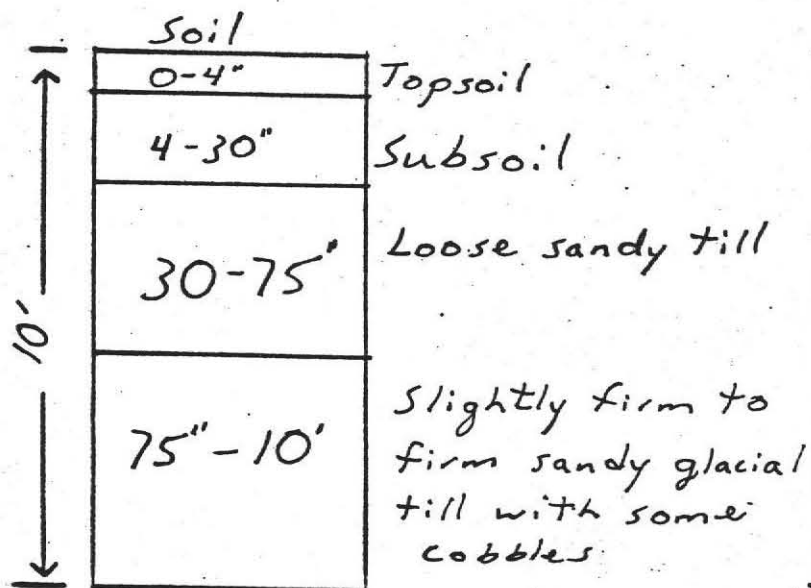 Soil
0-4" Topsoil
4-30" Subsoil
30-75" Loose sandy till
10'
75"-10' Slightly firm to
firm sandy glacial
till with some
cobbles